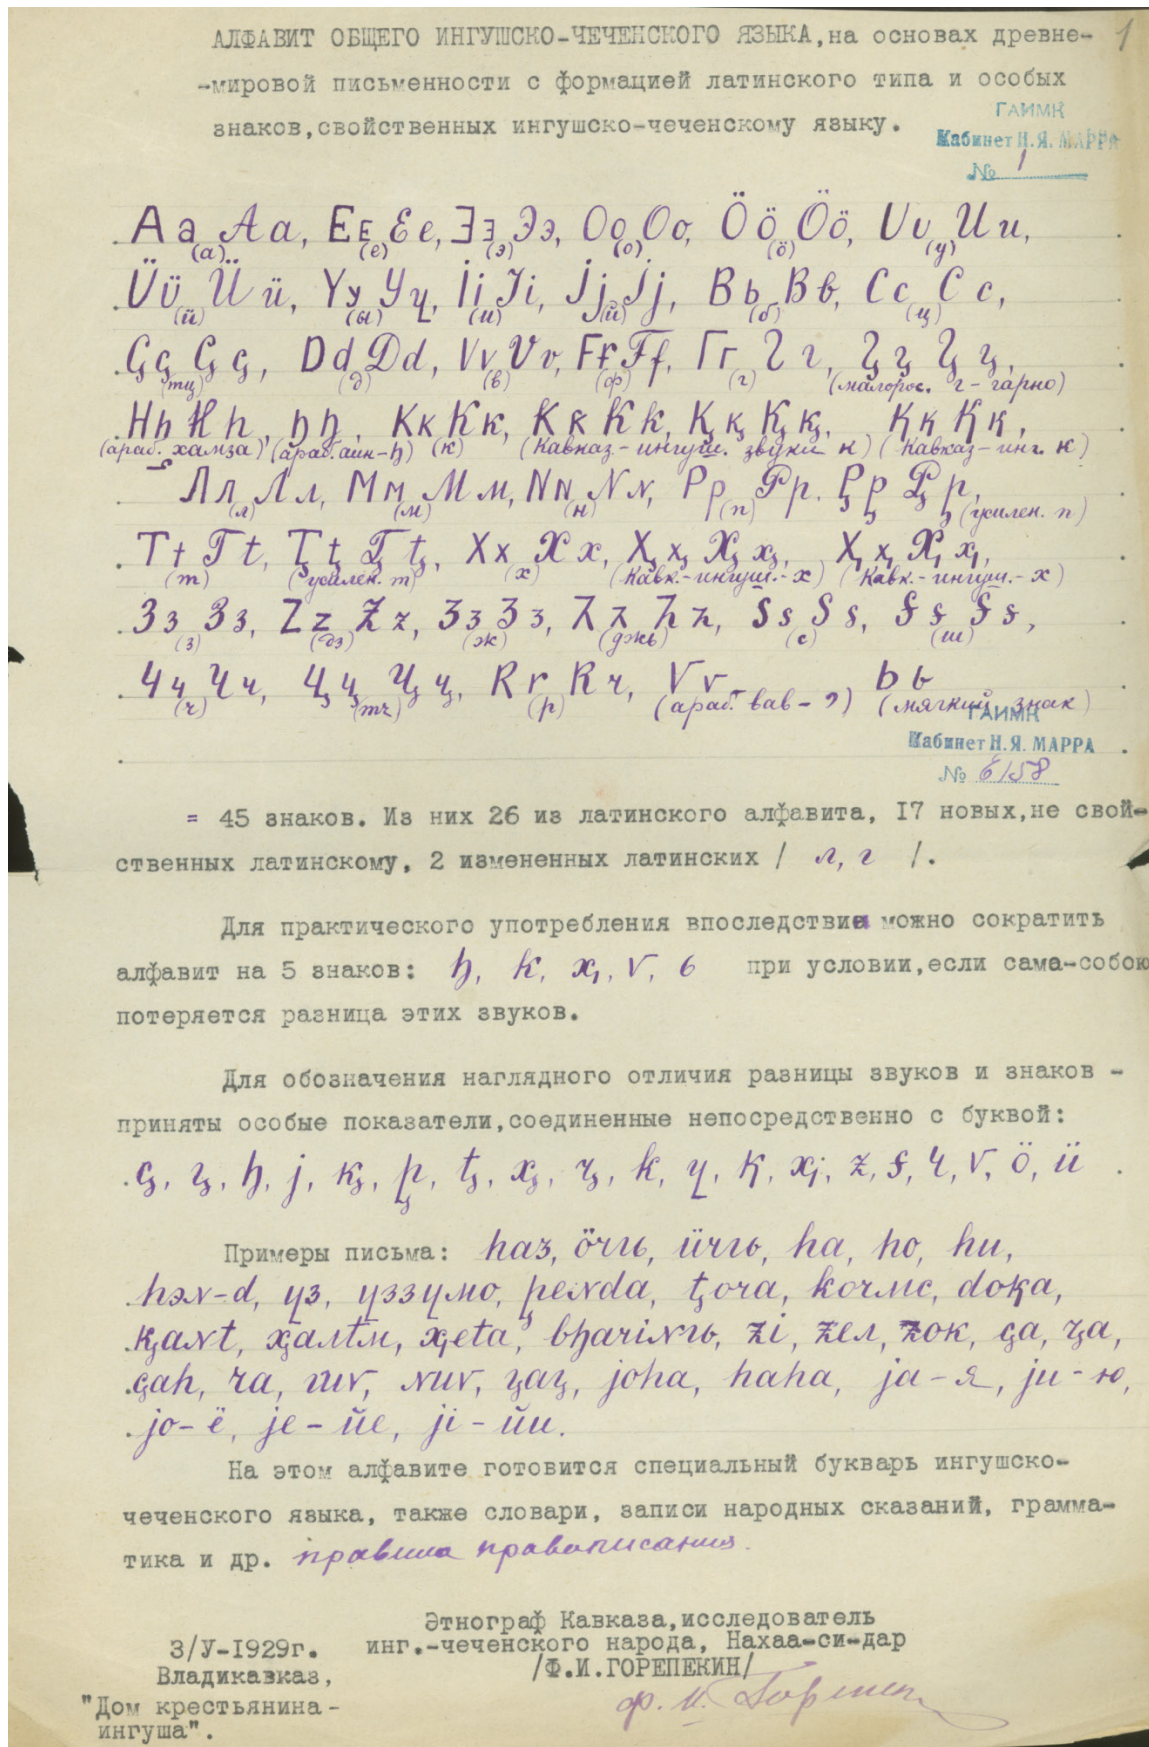 АЛФАВИТ ОБЩЕГО ИНГУШСКО-ЧЕЧЕНСКОГО ЯЗЫКА,на основах древне- 1
-мировой письменности с формацией латинского типа и особых
знаков,свойственных ингушско-чеченскому языку.
ГАИМК
Кабинет Н.Я. МАРРА
№ 1
Aa Aa, Ee Ee, Ээ Ээ, Oo Oo, Öö Öö, Uu Uu,
(а) (е) (э) (о) (ö) (у)
Üü Üü, Yy Yy, Ii Ii, Jj Jj, Bb Bb, Cc Cc,
(ӥ) (ы) (и) (й) (б) (ц)
Ꞔꞔ Ꞔꞔ, Dd Dd, Vv Vv, Ff Ff, Гг Гг,
(тц) (д) (в) (ф) (г) (малорос. г - гарно)
Hh Hh, ꜧꜧ, Kк Kк,
(араб. хамза) (араб. аин-ꜧ) (к) (Кавказ-ингуш. звуки к) (Кавказ-инг. к)
Лл Лл, Mм Mм, Nɴ Nɴ, Pp Pp,
(л) (м) (н) (п) (усилен. п)
Tt Tt, Xx Xx,
(т) (усилен. т) (х) (Кавк.-ингуш.-х) (Кавк.-ингуш.-х)
Зз Зз, Zz Zz, Ʒʒ Ʒʒ, Ss Ss,
(з) (дз) (ж) (джь) (с) (ш)
Чч Чч, Rr Rr, Vv ЬЬ
(ч) (тч) (р) (араб. вав - و) (мягкий знак)
ГАИМК
Кабинет Н.Я. МАРРА
№ 6158
= 45 знаков. Из них 26 из латинского алфавита, 17 новых,не свой-
ственных латинскому, 2 измененных латинских / л, г /.
Для практического употребления впоследствии можно сократить
алфавит на 5 знаков: ꜧ, к, х, v, ь при условии,если сама-собою
потеряется разница этих звуков.
Для обозначения наглядного отличия разницы звуков и знаков -
приняты особые показатели,соединенные непосредственно с буквой:
Примеры письма: haз, öчгь, üчгь, ha, ho, hu,
hэɴ-d, yз, yззyмo, doқa,
joha, haha, ja - я, ju - ю,
jo - ё, je - йе, ji - йи.
На этом алфавите готовится специальный букварь ингушско-
чеченского языка, также словари, записи народных сказаний, грамма-
тика и др. правила правописания.
Этнограф Кавказа,исследователь
инг.-чеченского народа, Нахаа-си-дар
/Ф.И.ГОРЕПЕКИН/
3/У-1929г.
Владикавказ,
"Дом крестьянина-
ингуша".
Ф. И. Горепек